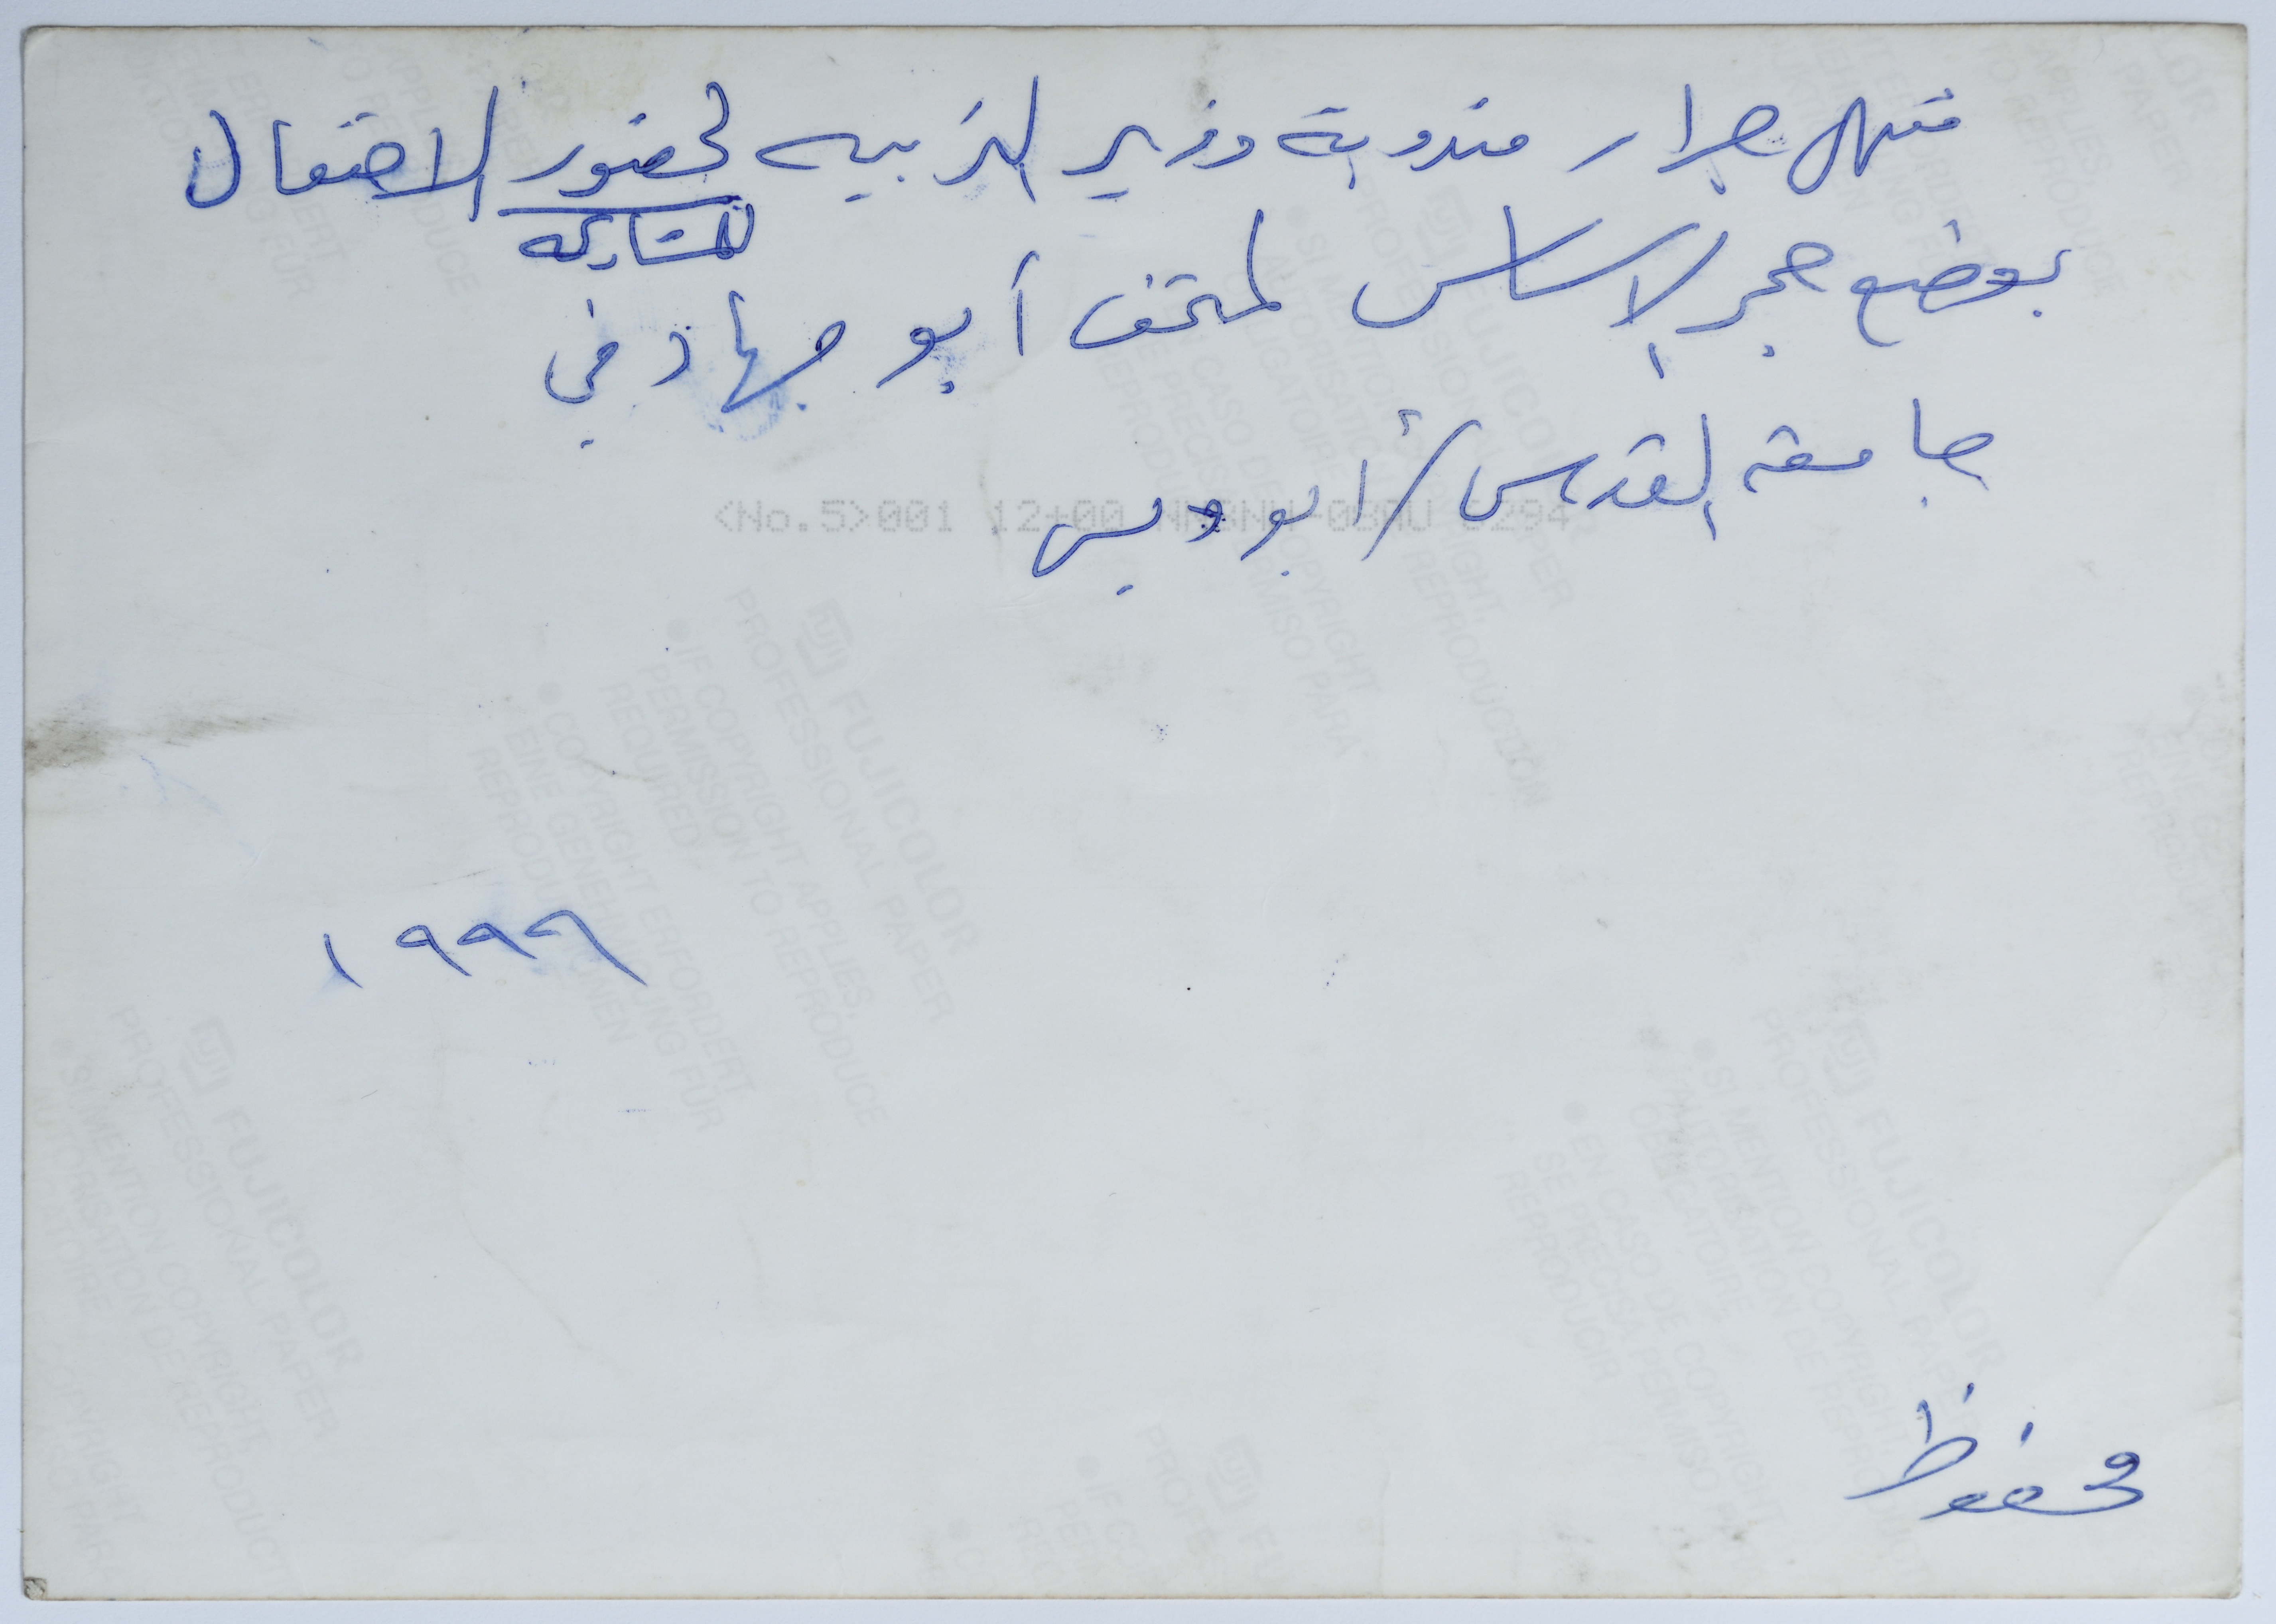 منتهى جرار مندوبة وزير التربيه لحضور الاحتفال
للمشاركه
بوضع حجر الاساس لمتحف أبو جهاد في
جامعة القدس / أبو ديس
<No.5>001 12+00 NNNNN
١٩٩٩
محفوظ
FUJICOLOR
PROFESSIONAL PAPER
IF COPYRIGHT APPLIES,
PERMISSION TO REPRODUCE
REQUIRED
COPYRIGHT ERFORDERT
EINE GENEHMIGUNG FÜR
REPRODUKTIONEN
FUJICOLOR
PROFESSIONAL PAPER
SI MENTION COPYRIGHT,
AUTORISATION DE REPRODUCTION
OBLIGATOIRE
EN CASO DE COPYRIGHT
SE PRECISA PERMISO PARA
REPRODUCIR